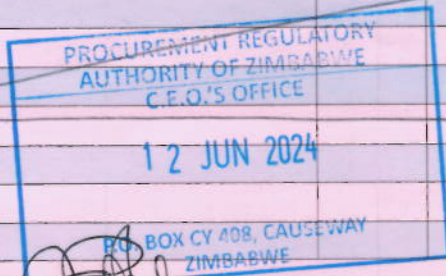 PROCUREMENT REGULATORY
AUTHORITY OF ZIMBABWE
C.E.O.'S OFFICE
12 JUN 2024
P.O. BOX CY 408, CAUSEWAY
ZIMBABWE